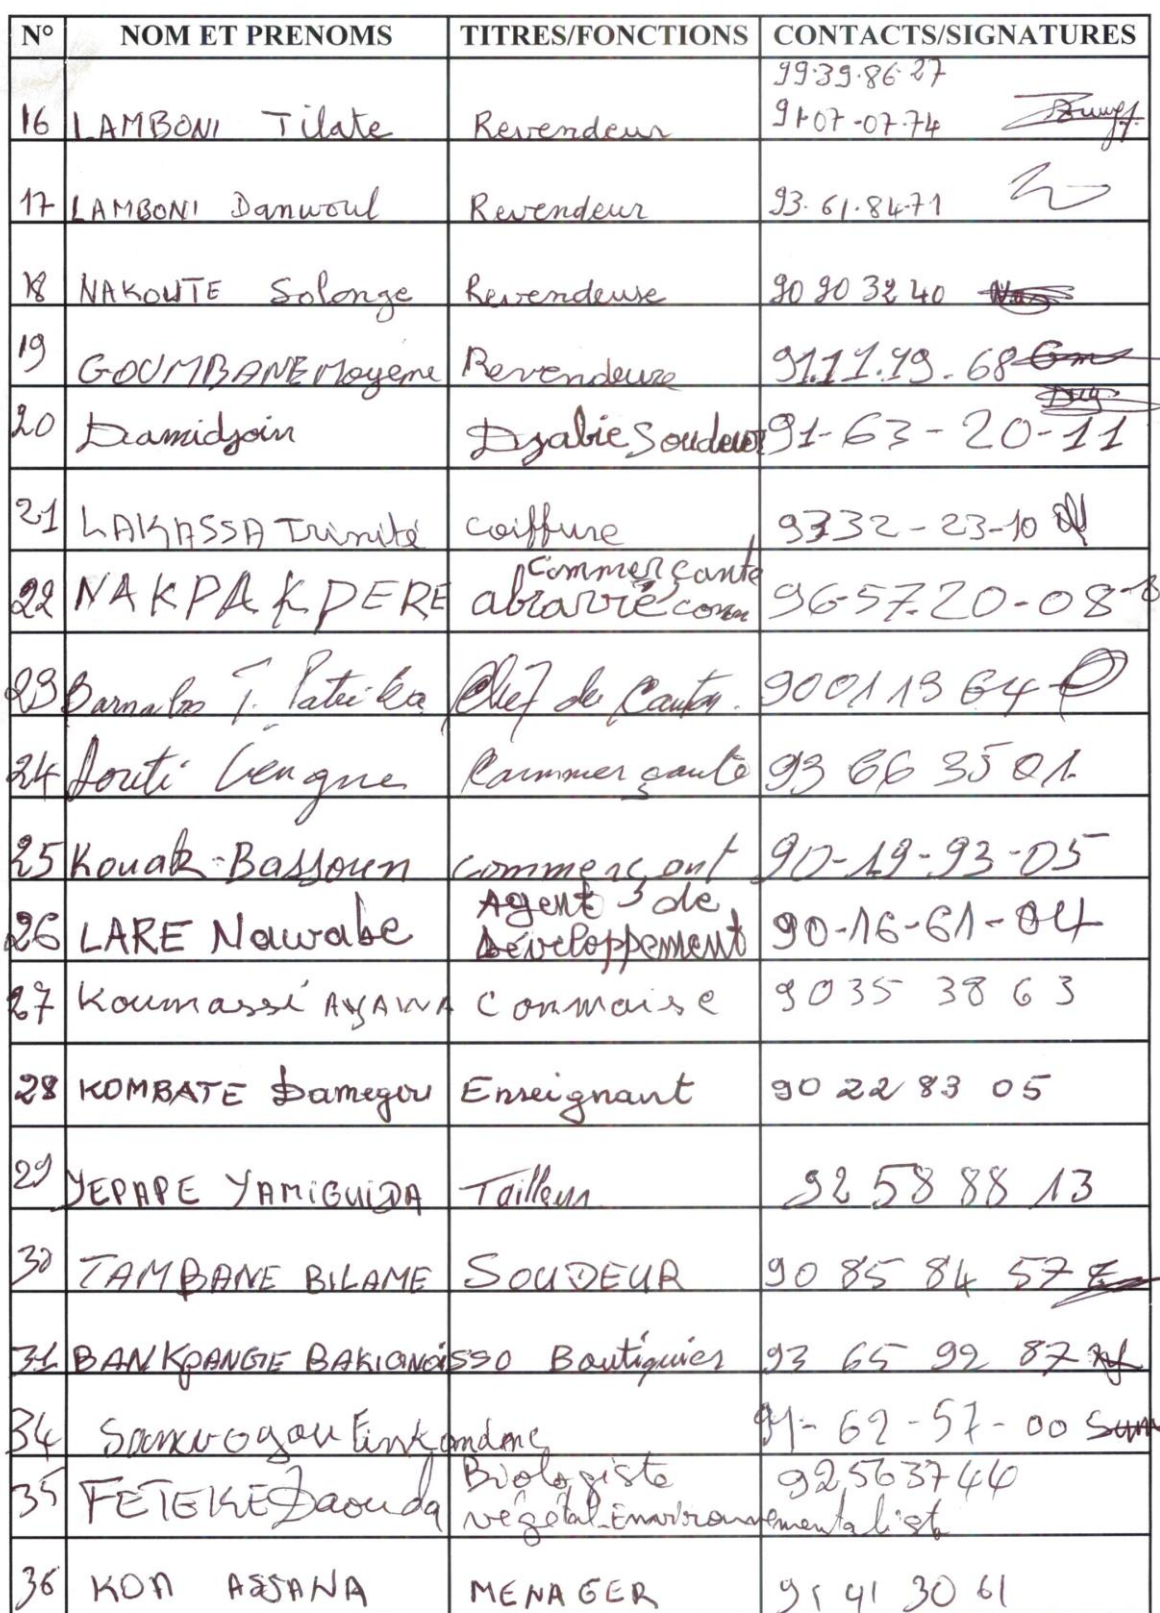 N° NOM ET PRENOMS TITRES/FONCTIONS CONTACTS/SIGNATURES
99.39.86.27
16 LAMBONI Tilate Revendeur 91-07-07.74
17 LAMBONI Danwoul Revendeur 93.61.84.71
18 NAKOUTE Solange Revendeuse 90 90 32 40
19 GOUMBANE Moyeme Revendeuse 91.11.19.68
20 Damidjoin Djabie Soudeur 91-63-20-11
21 LAKASSA Trinité coiffure 9332-23-10
commerçante
22 NAKPAKPERE 96-57.20-08
23 T. Chef de Canton. 90011364
24 Commerçante 93 66 35 01
25 Kouak-Bassoun commerçant 90-19-93-05
Agent de
26 LARE Nawabe Développement 90-16-61-04
27 Koumassi AYAWA 9035 38 63
28 KOMBATE Damegou Enseignant 90 22 83 05
29 YEPAPE YAMIGUIDA Tailleur 92 58 88 13
30 TAMBANE BILAME SOUDEUR 90 85 84 57
31 BANKPANGIE Boutiquier 93 65 92 87
34 91-62-57-00
Biologiste 92563744
35 FETEKE Daouda végétal-Environnementaliste
36 KOA ASSANA MENAGER 91 41 30 61